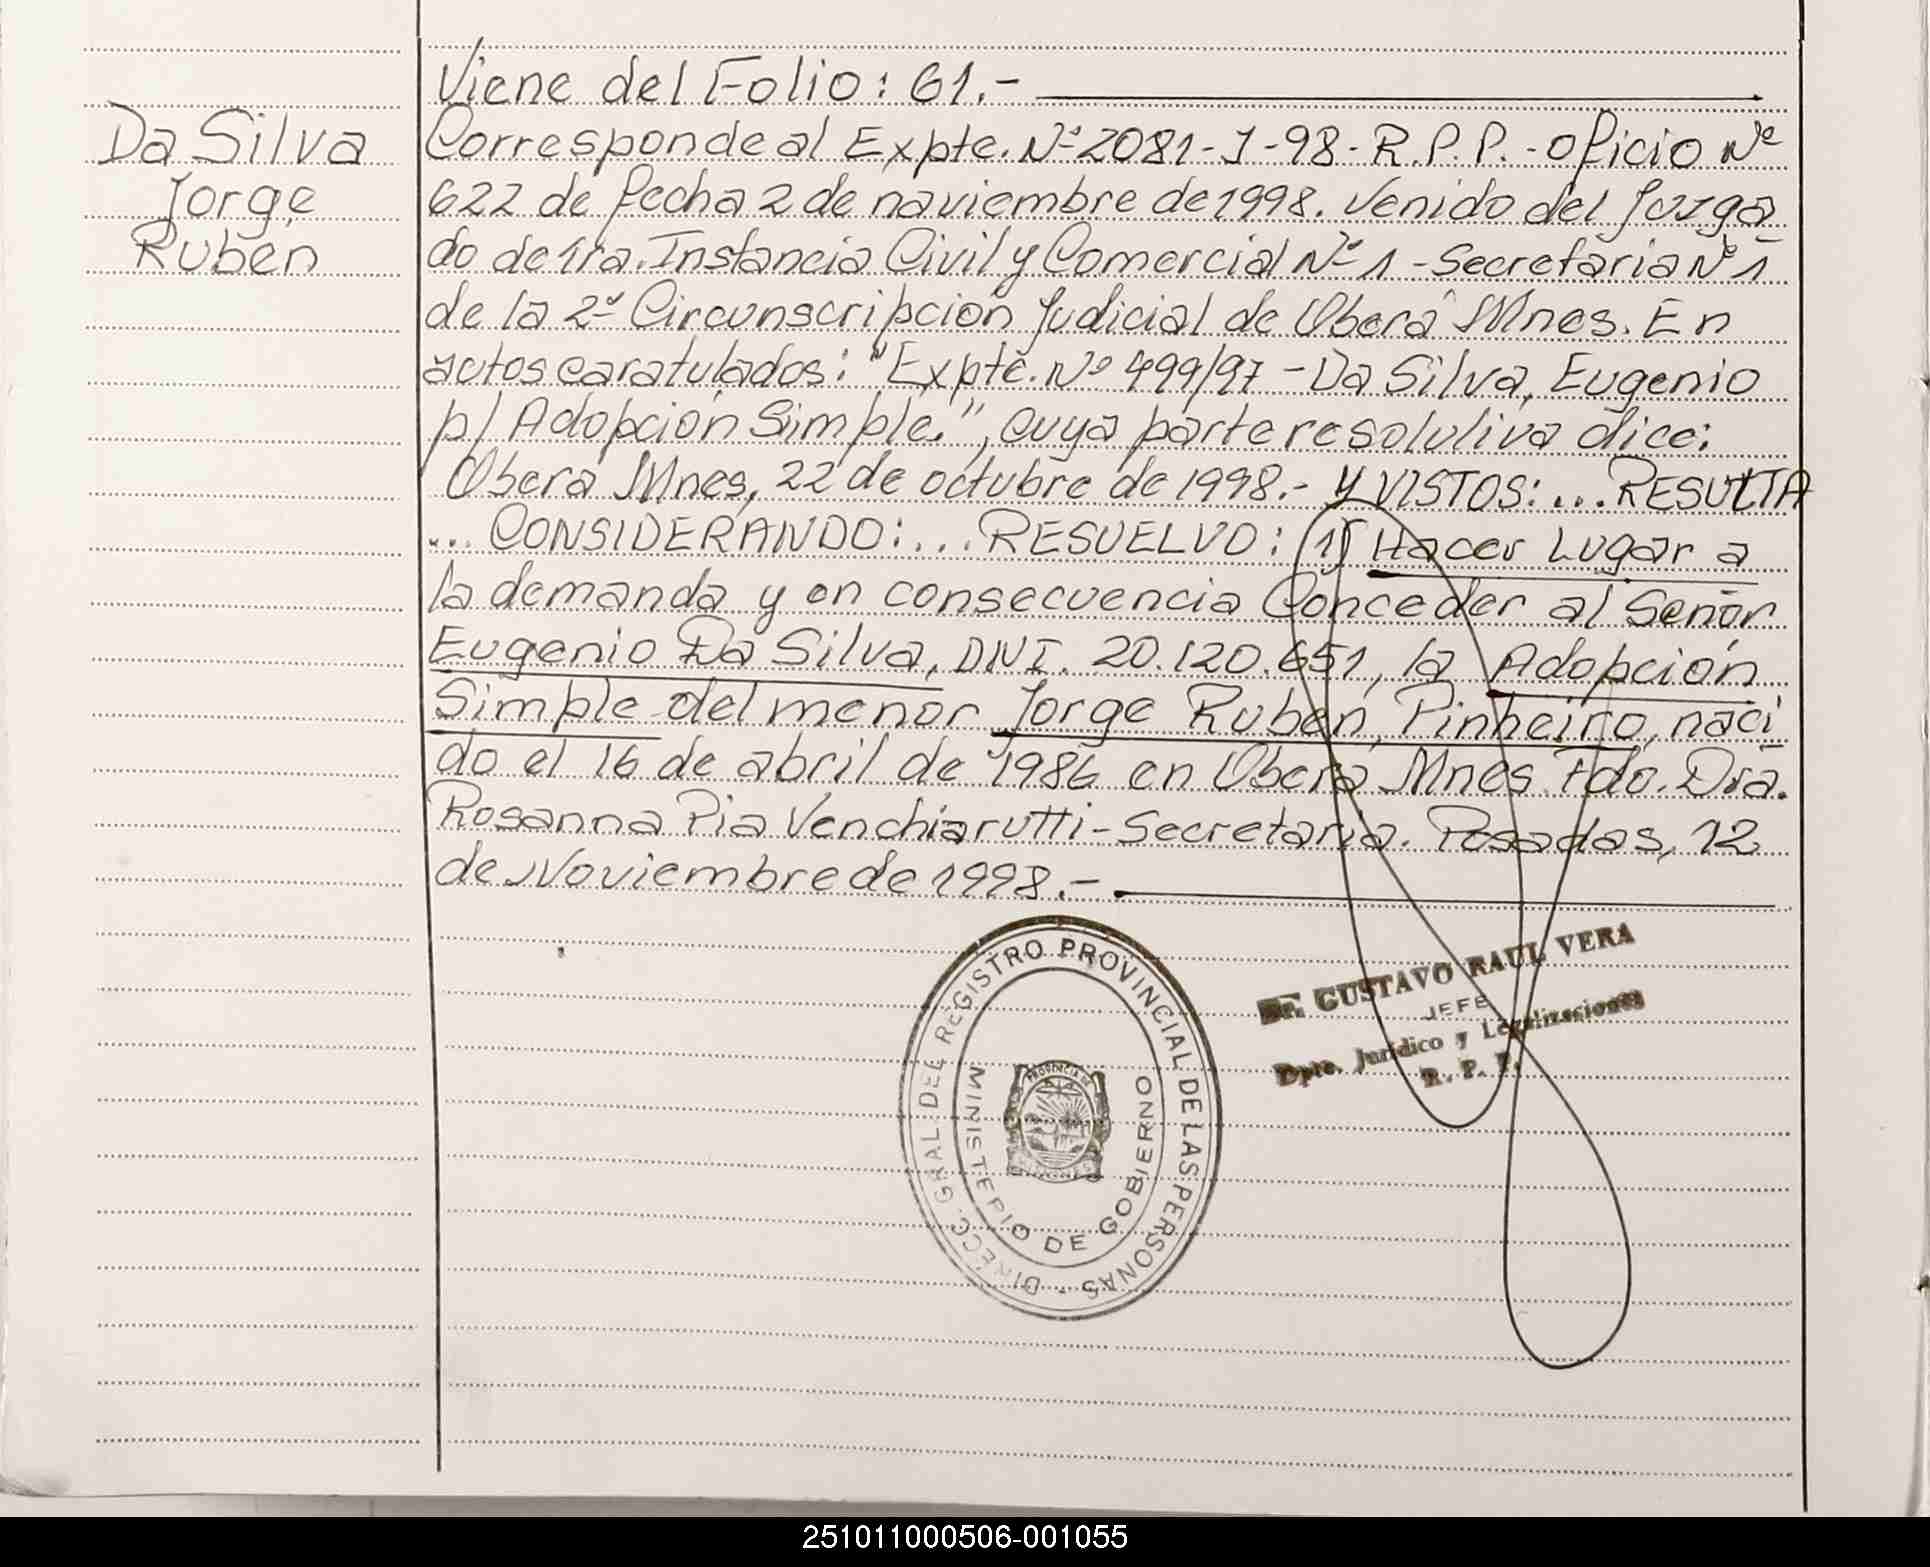 Viene del Folio: 61.-
Da Silva
Jorge
Ruben
Corresponde al Expte. Nº 2081-J-98-R.P.P.-oficio Nº
622 de fecha 2 de noviembre de 1998. Venido del Juzga
do de 1ra. Instancia Civil y Comercial Nº 1 - Secretaria Nº 1
de la 2º Circunscripción Judicial de Oberá Mnes. En
autos caratulados: "Expte. Nº 499/97 - Da Silva, Eugenio
p/ Adopción Simple.", cuya parte resolutiva dice:
Oberá Mnes, 22 de octubre de 1998.- Y VISTOS: ... RESULTA
... CONSIDERANDO: ... RESUELVO: (1) Hacer Lugar a
la demanda y en consecuencia Conceder al Señor
Eugenio Da Silva, DNI. 20.120.651, la Adopción
Simple del menor Jorge Ruben, Pinheiro, naci
do el 16 de abril de 1986 en Oberá Mnes. Fdo. Dra.
Rosanna Pia Venchiarutti - Secretaria. Posadas, 12
de Noviembre de 1998.-
DIRECC. GRAL. DEL REGISTRO PROVINCIAL DE LAS PERSONAS
MINISTERIO DE GOBIERNO
PROVINCIA DE
MISIONES
Dr. GUSTAVO RAUL VERA
JEFE
Dpto. Jurídico y Legalizaciones
R. P. P.
251011000506-001055